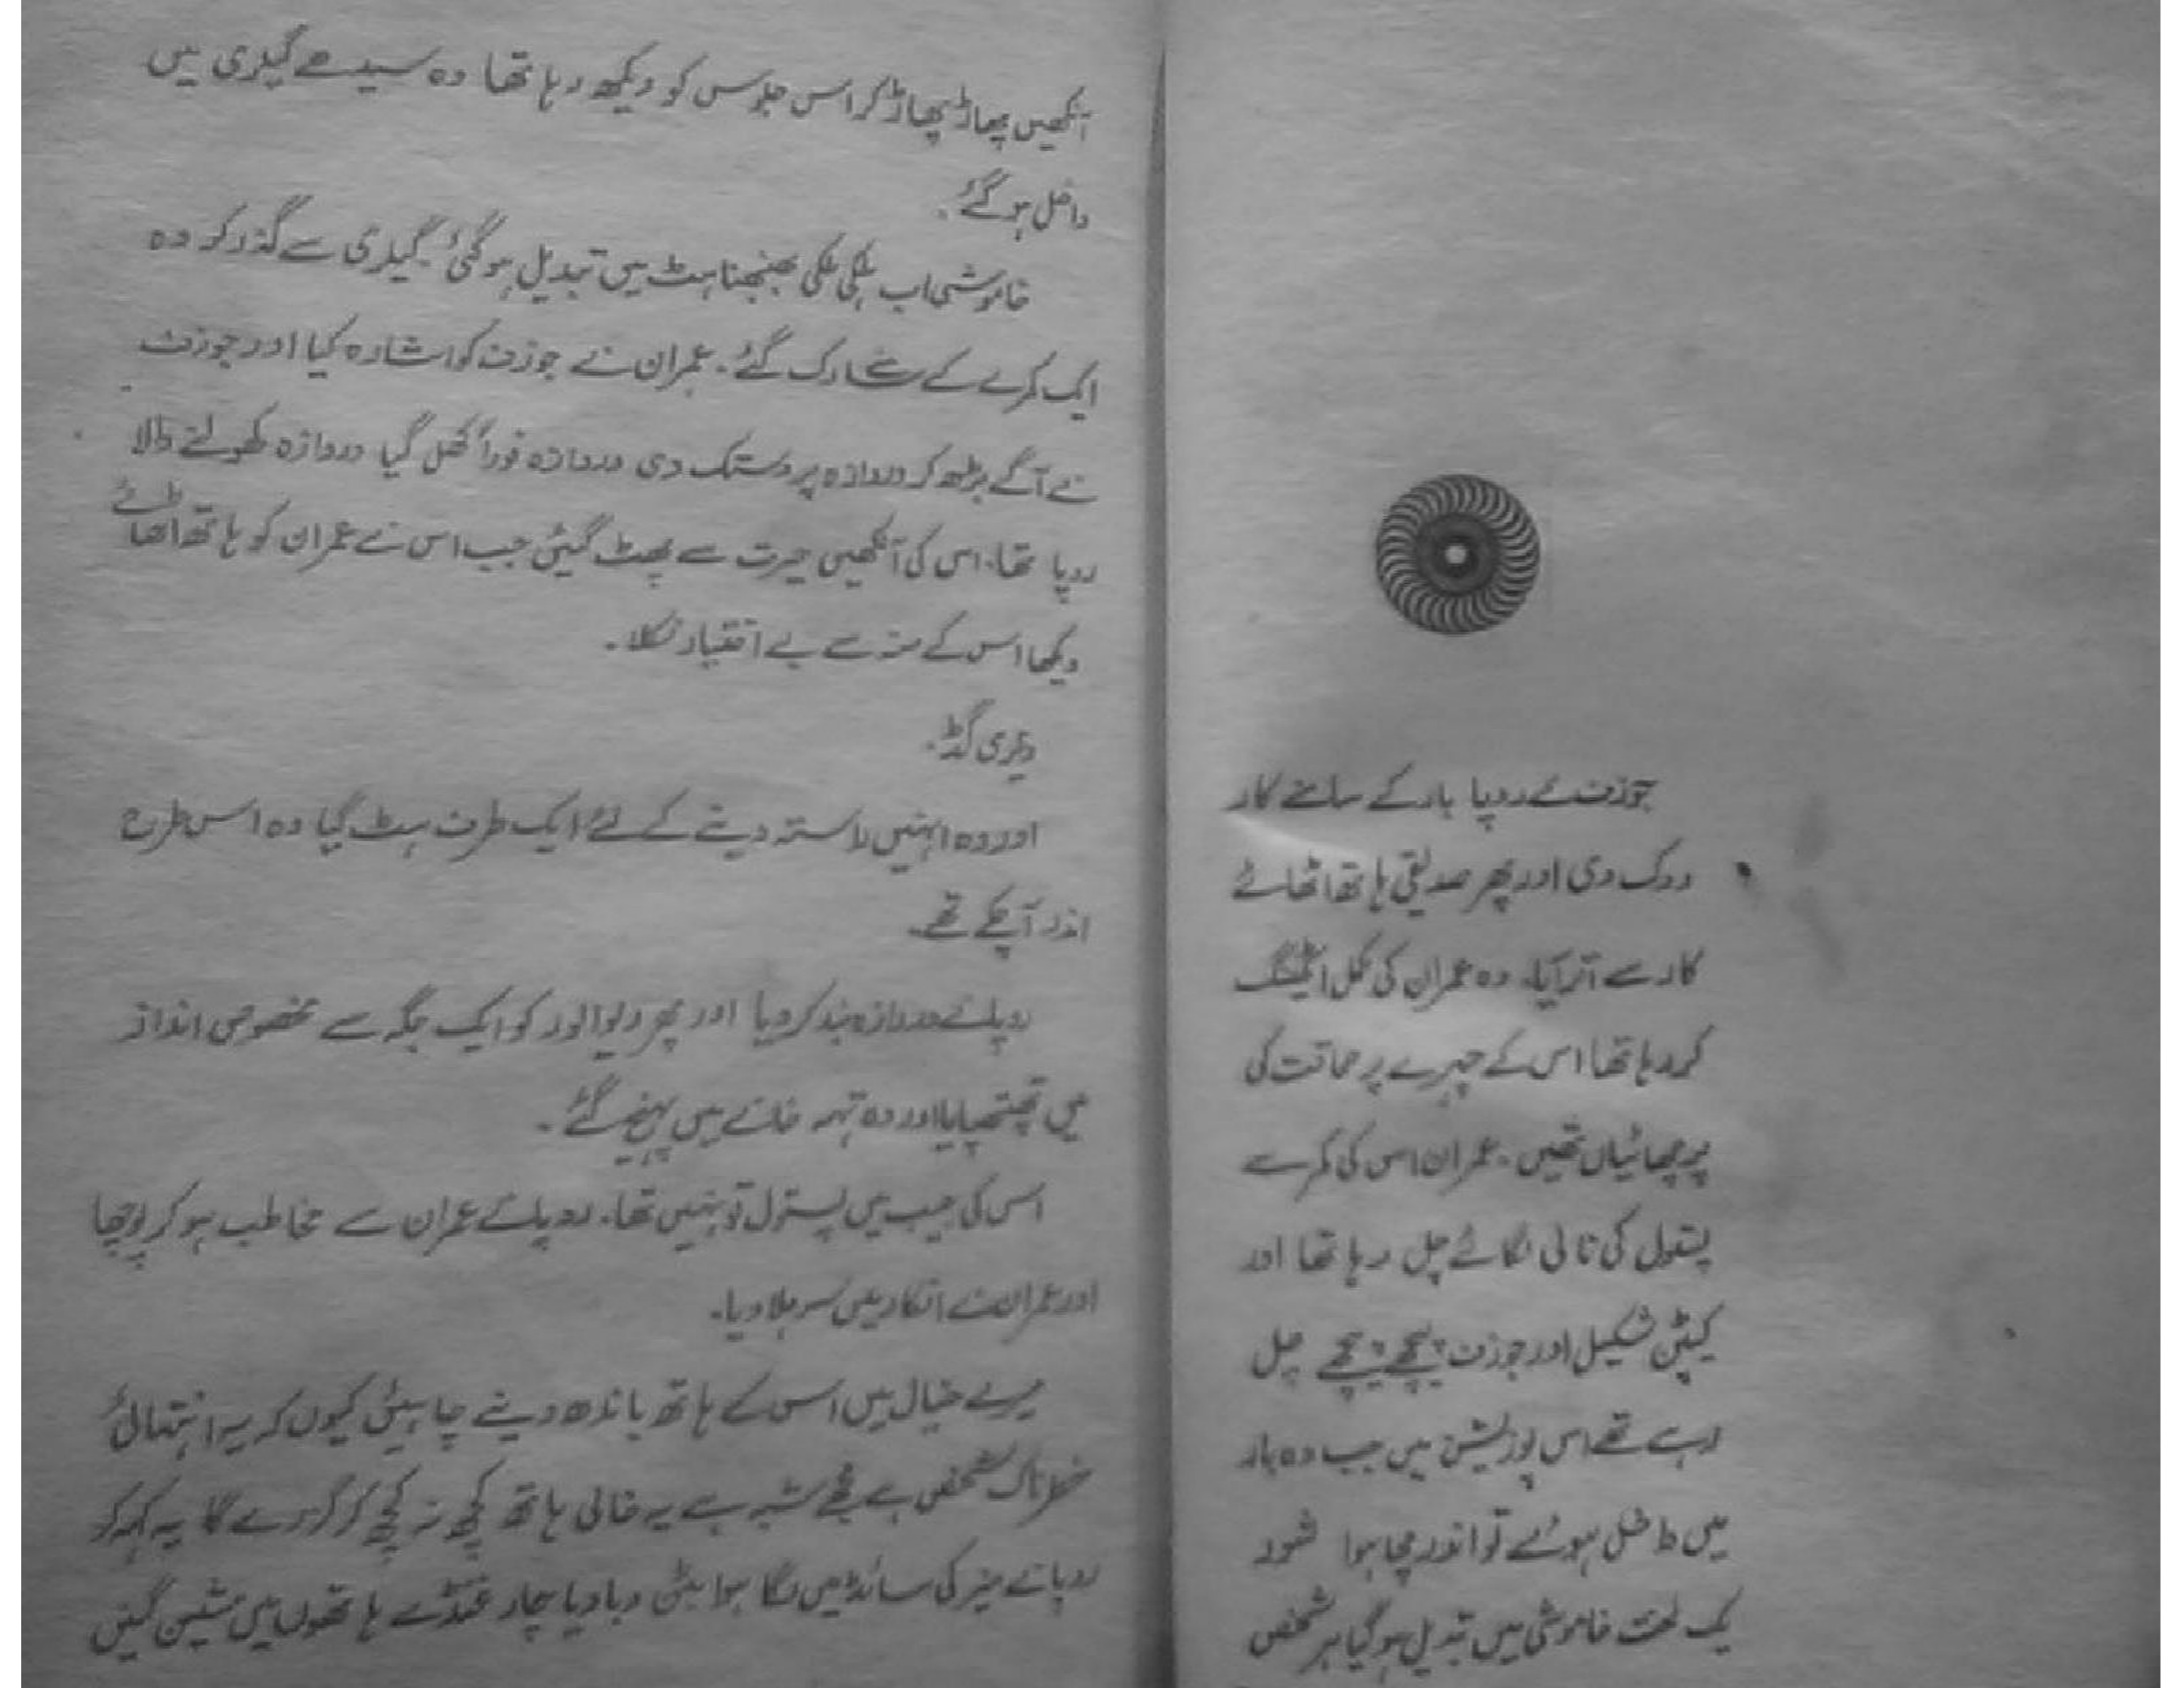 جوزف نے روپا بار کے سامنے کار
روک دی اور پھر صدیقی ہاتھ اٹھائے
کار سے اتر آیا۔ وہ عمران کی مکمل ایکٹنگ
کر رہا تھا اس کے چہرے پر حماقت کی
پرچھائیاں تھیں۔ عمران اس کی کمر سے
پستول کی نالی لگائے چل رہا تھا اور
کیپٹن شکیل اور جوزف پیچھے پیچھے چل
رہے تھے اس پوزیشن میں جب وہ بار
میں داخل ہوئے تو اندر مچا ہوا شور
یک لخت خاموشی میں تبدیل ہو گیا ہر شخص
آنکھیں پھاڑ پھاڑ کر اس جلوس کو دیکھ رہا تھا وہ سیدھے گیلری میں
داخل ہو گئے۔
خاموشی اب ہلکی ہلکی بھنبھناہٹ میں تبدیل ہو گئی۔ گیلری سے گذر کر وہ
ایک کمرے کے سامنے رک گئے۔ عمران نے جوزف کو اشارہ کیا اور جوزف
نے آگے بڑھ کر دروازہ پر دستک دی دروازہ فوراً کھل گیا دروازہ کھولنے والا
روپا تھا۔ اس کی آنکھیں حیرت سے پھٹ گیئں جب اس نے عمران کو ہاتھ اٹھائے
دیکھا اس کے منہ سے بے اختیار نکلا۔
ویری گڈ۔
اور وہ انہیں راستہ دینے کے لئے ایک طرف ہٹ گیا وہ اس طرح
اندر آ چکے تھے۔
روپا نے دروازہ بند کر دیا اور پھر دیوالور کو ایک جگہ سے مخصوص انداز
میں تھپتھپایا اور وہ تہہ خانے میں پہنچ گئے۔
اس کی جیب میں پستول تو نہیں تھا۔ روپا نے عمران سے مخاطب ہو کر پوچھا
اور عمران نے انکار میں سر ہلا دیا۔
میرے خیال میں اس کے ہاتھ باندھ دینے چاہیئں کیوں کہ یہ انتہائی
خطرناک شخص ہے مجھے شبہ ہے یہ خالی ہاتھ کچھ نہ کچھ کر گزرے گا یہ کہہ کر
روپا نے میز کی سائڈ میں لگا ہوا بٹن دبا دیا چار غنڈے ہاتھوں میں مشین گنیں